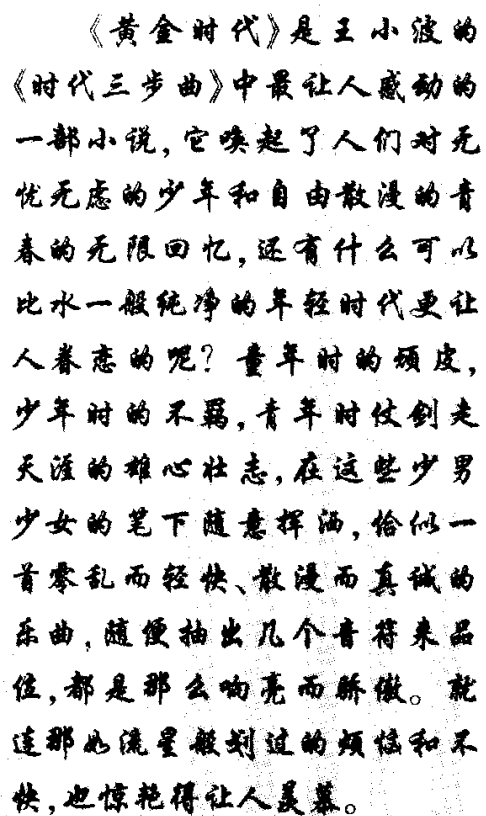 《黄金时代》是王小波的
《时代三步曲》中最让人感动的
一部小说，它唤起了人们对无
忧无虑的少年和自由散漫的青
春的无限回忆，还有什么可以
比水一般纯净的年轻时代更让
人眷恋的呢？童年时的顽皮，
少年时的不羁，青年时仗剑走
天涯的雄心壮志，在这些少男
少女的笔下随意挥洒，恰似一
首零乱而轻快、散漫而真诚的
乐曲，随便抽出几个音符来品
位，都是那么响亮而骄傲。就
连那如流星般划过的烦恼和不
快，也惊艳得让人羡慕。